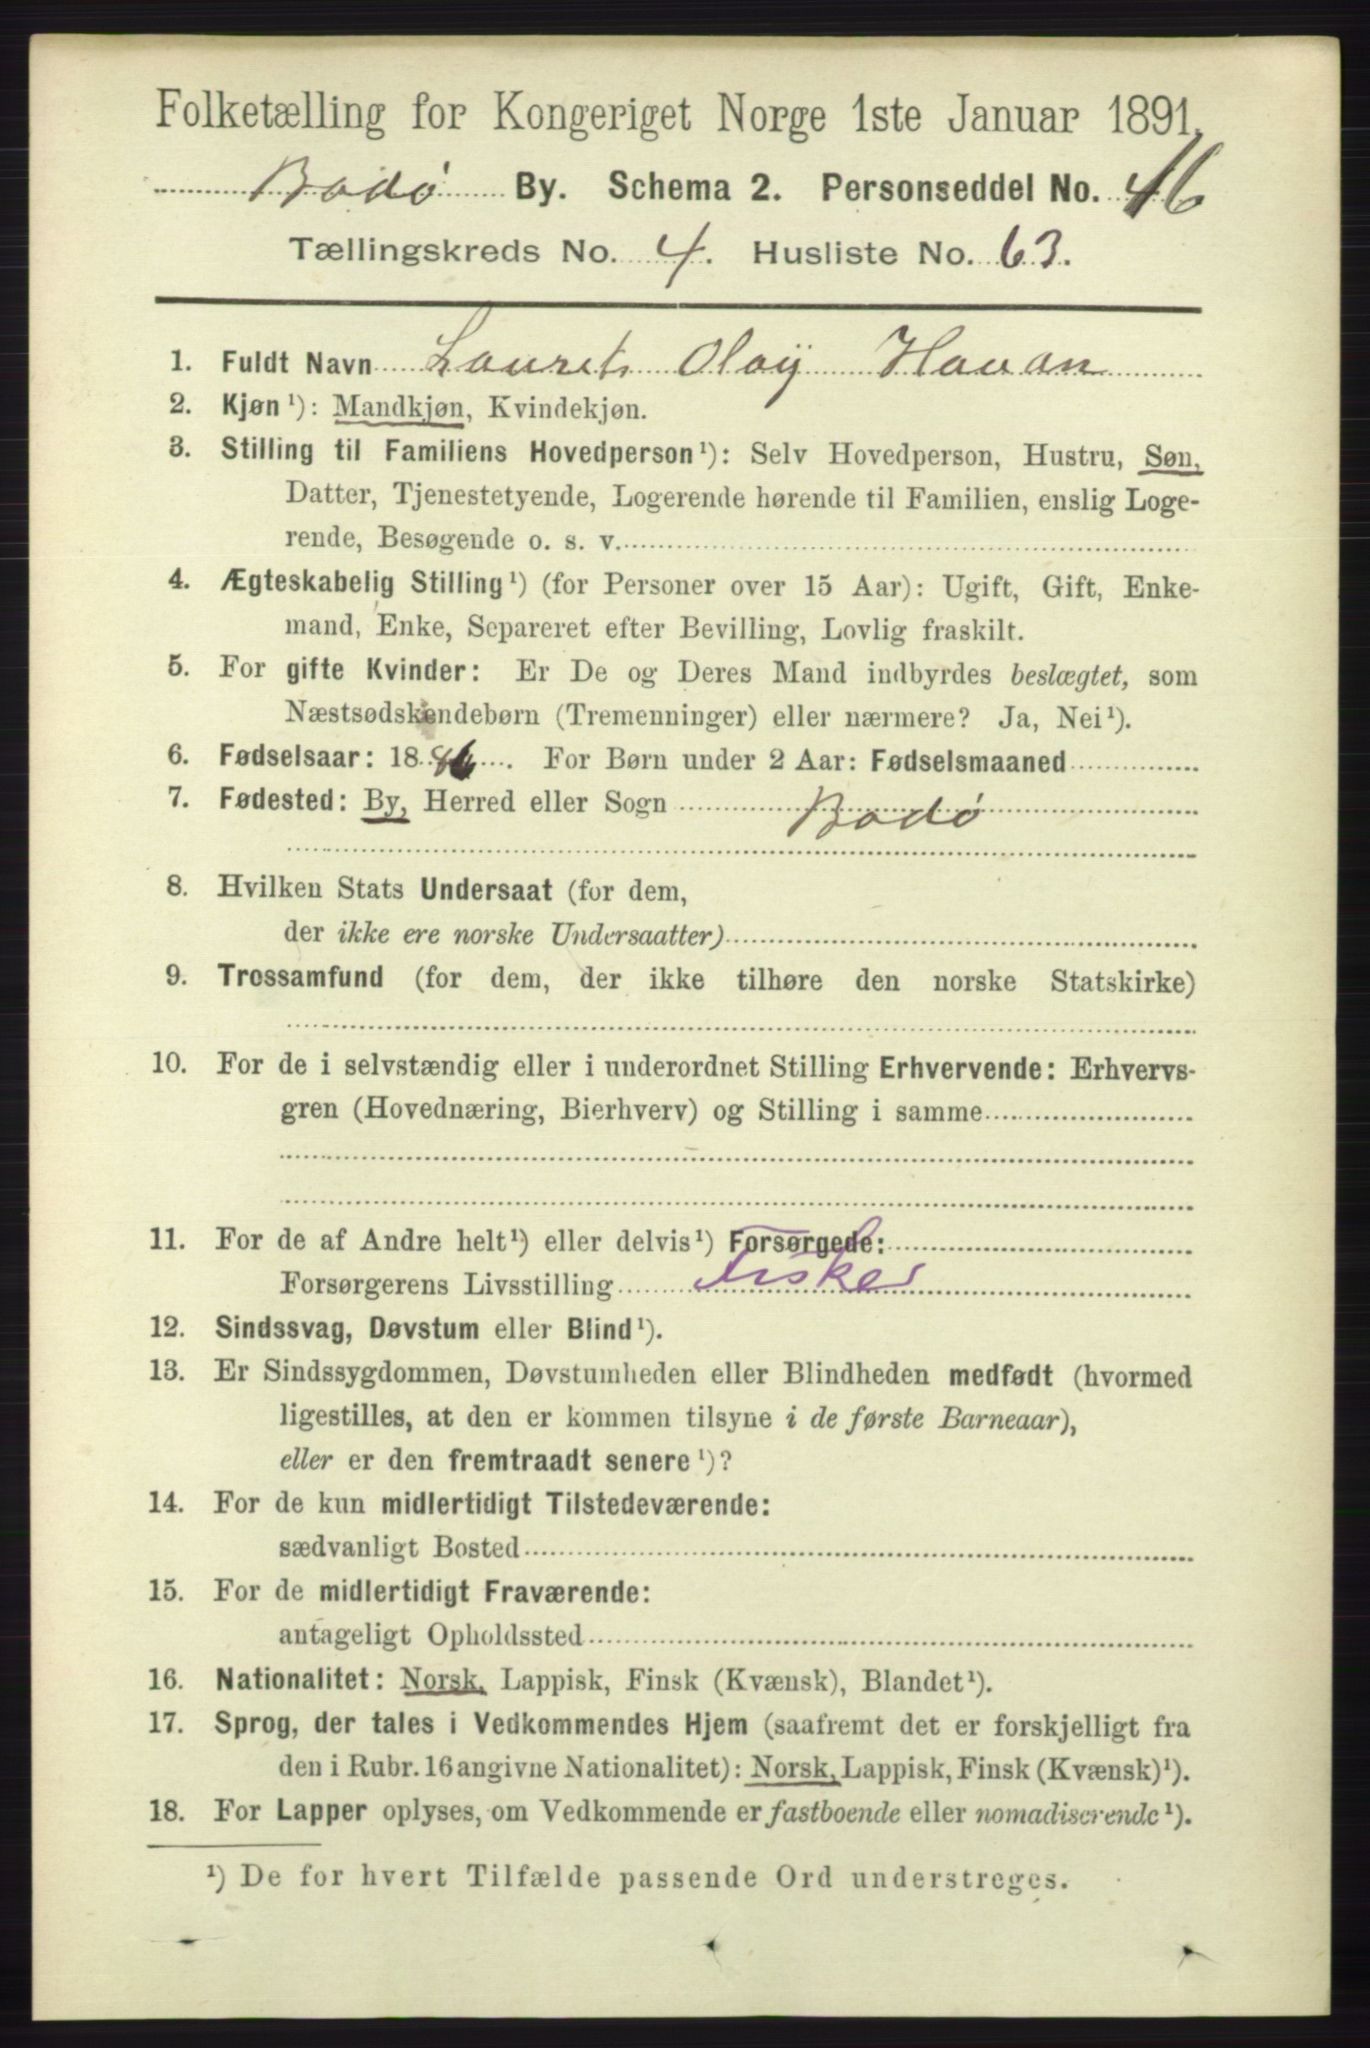 Folketælling for Kongeriget Norge 1ste Januar 1891.
Bodø By. Schema 2. Personseddel No. 46
Tællingskreds No. 4. Husliste No. 63.
1. Fuldt Navn Laurets Olaÿ Havan
2. Kjøn¹): Mandkjøn, Kvindekjøn.
3. Stilling til Familiens Hovedperson¹): Selv Hovedperson, Hustru, Søn,
Datter, Tjenestetyende, Logerende hørende til Familien, enslig Loge-
rende, Besøgende o. s. v.
4. Ægteskabelig Stilling¹) (for Personer over 15 Aar): Ugift, Gift, Enke-
mand, Enke, Separeret efter Bevilling, Lovlig fraskilt.
5. For gifte Kvinder: Er De og Deres Mand indbyrdes beslægtet, som
Næstsødskendebørn (Tremenninger) eller nærmere? Ja, Nei¹).
6. Fødselsaar: 1886. For Børn under 2 Aar: Fødselsmaaned
7. Fødested: By, Herred eller Sogn Bodø
8. Hvilken Stats Undersaat (for dem,
der ikke ere norske Undersaatter)
9. Trossamfund (for dem, der ikke tilhøre den norske Statskirke)
10. For de i selvstændig eller i underordnet Stilling Erhvervende: Erhvervs-
gren (Hovednæring, Bierhverv) og Stilling i samme
11. For de af Andre helt¹) eller delvis¹) Forsørgede:
Forsørgerens Livsstilling Fisker
12. Sindssvag, Døvstum eller Blind¹).
13. Er Sindssygdommen, Døvstumheden eller Blindheden medfødt (hvormed
ligestilles, at den er kommen tilsyne i de første Barneaar),
eller er den fremtraadt senere¹)?
14. For de kun midlertidigt Tilstedeværende:
sædvanligt Bosted
15. For de midlertidigt Fraværende:
antageligt Opholdssted
16. Nationalitet: Norsk, Lappisk, Finsk (Kvænsk), Blandet¹).
17. Sprog, der tales i Vedkommendes Hjem (saafremt det er forskjelligt fra
den i Rubr. 16 angivne Nationalitet): Norsk, Lappisk, Finsk (Kvænsk)¹).
18. For Lapper oplyses, om Vedkommende er fastboende eller nomadiserende¹).
¹) De for hvert Tilfælde passende Ord understreges.